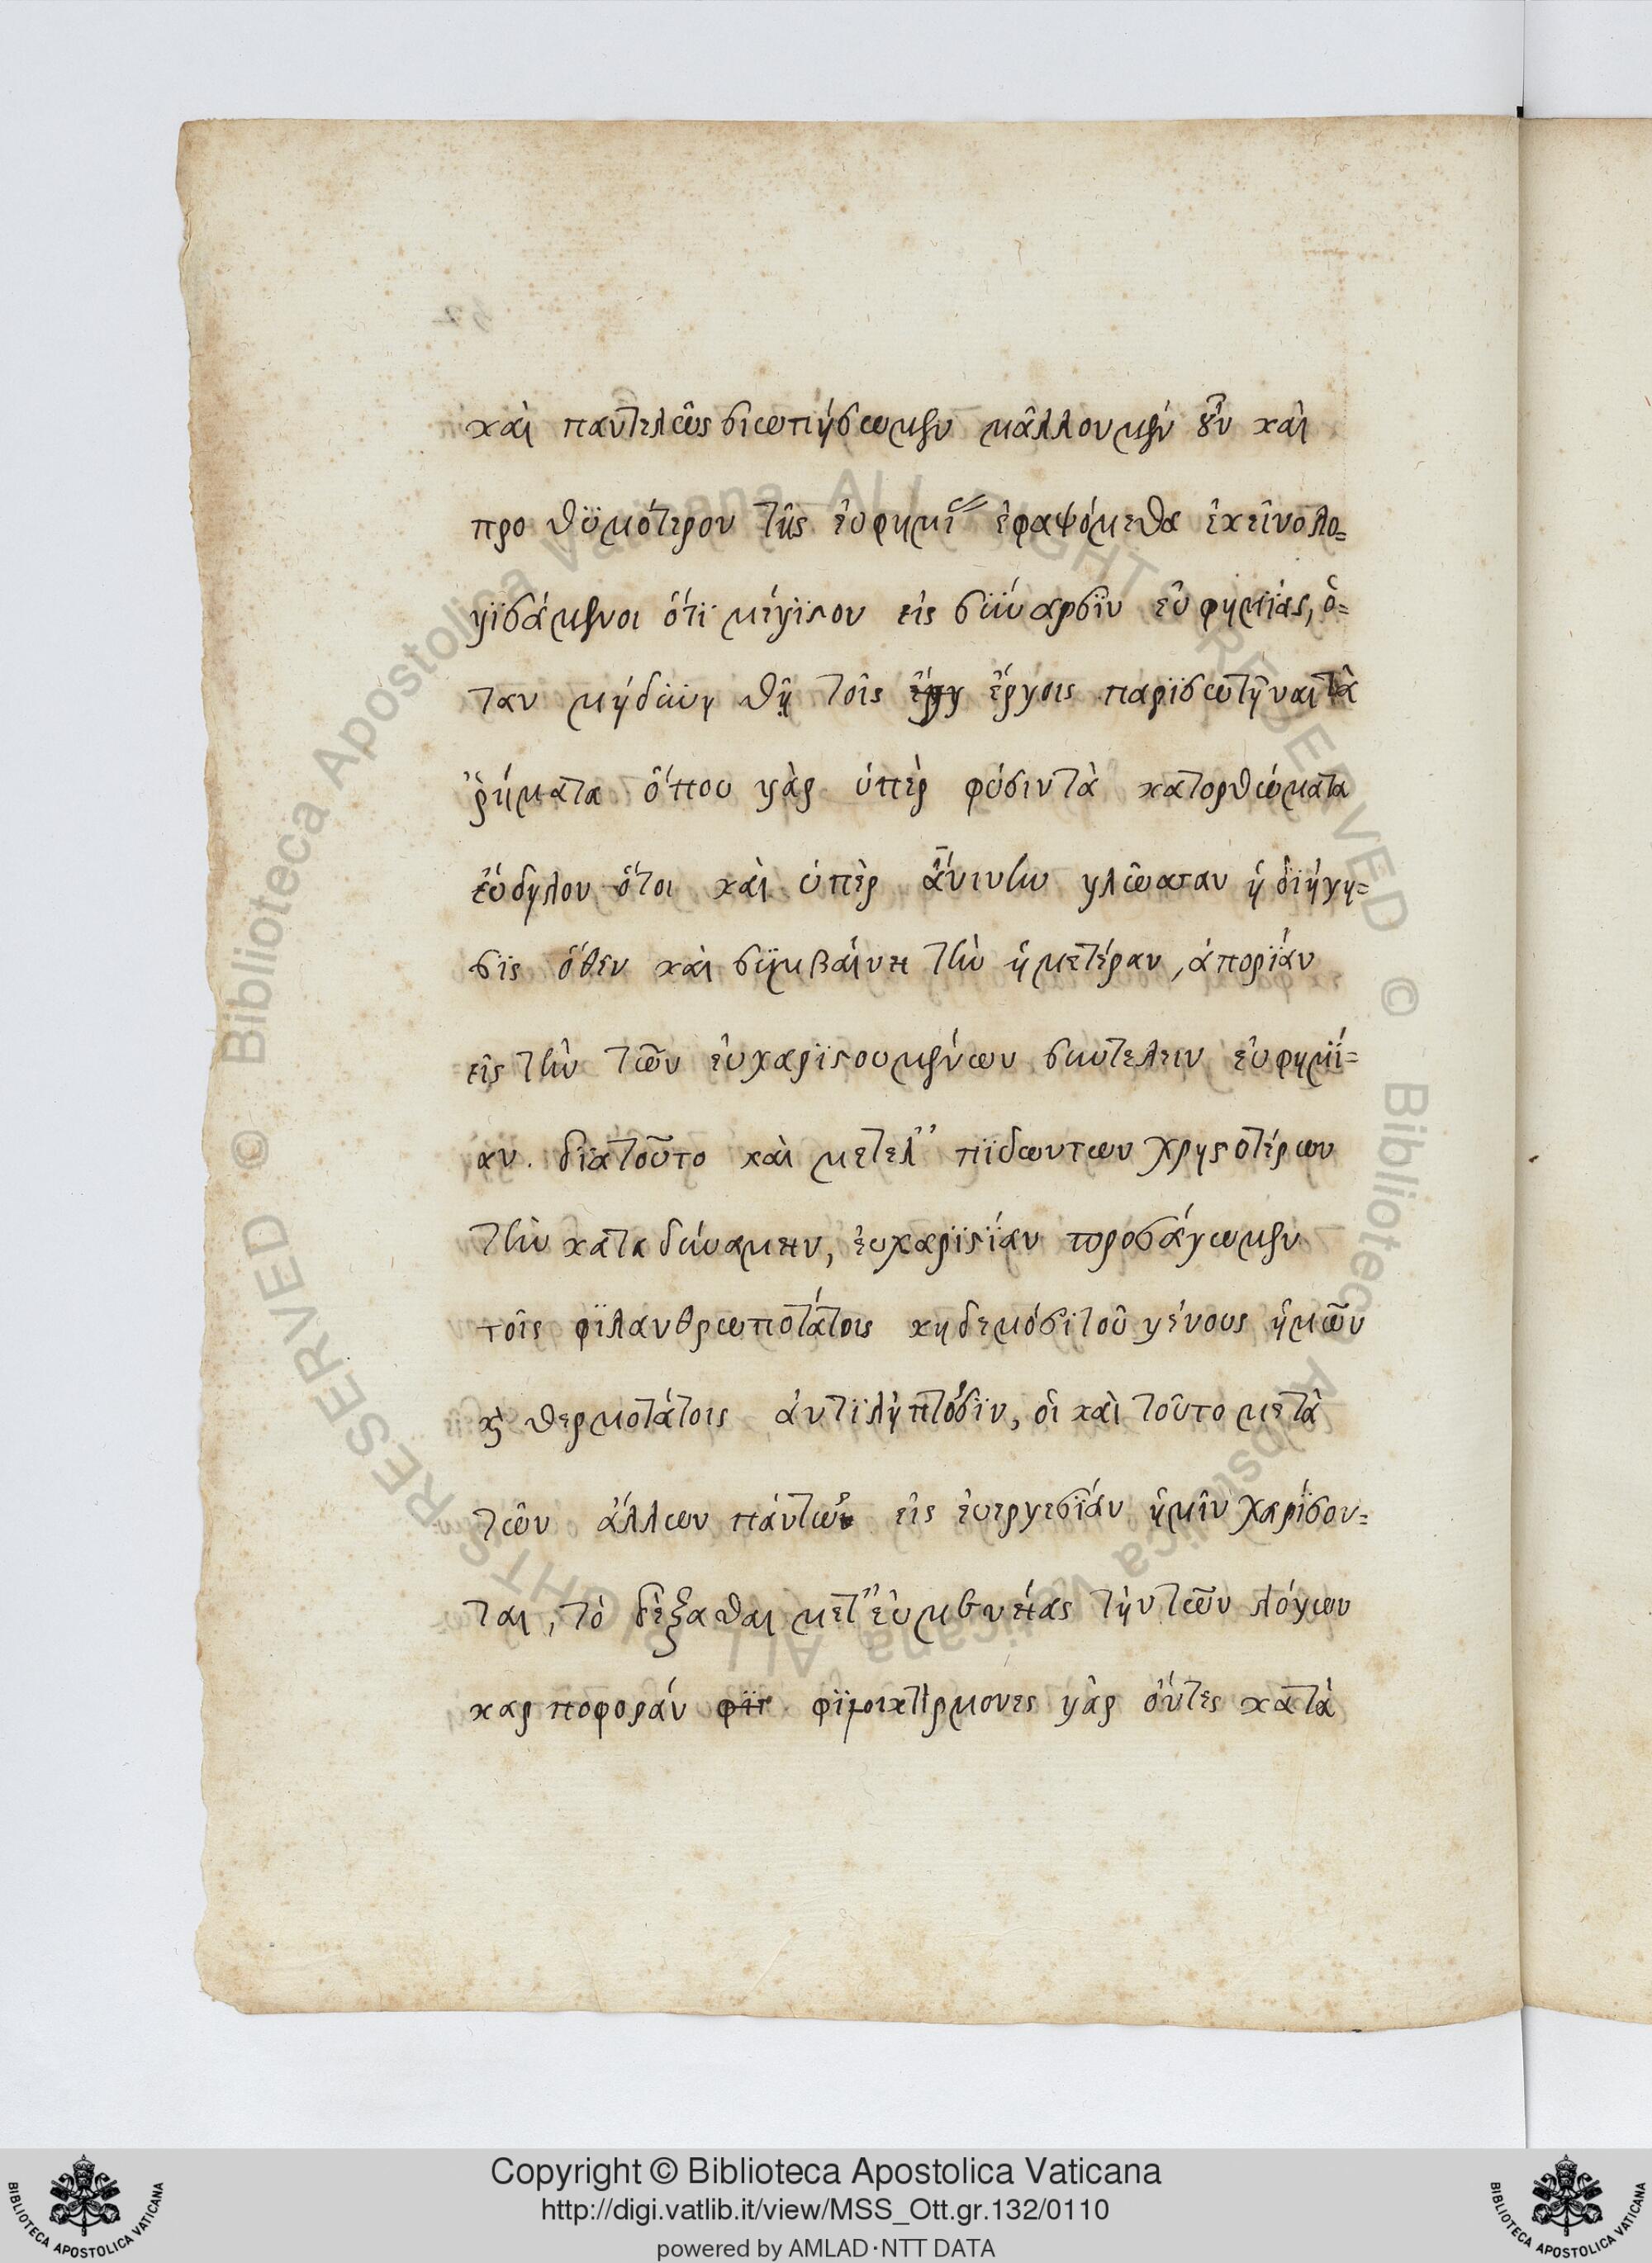 καὶ παντελῶς σιωπήσωμεν μᾶλλον μὲν οὖν καὶ
προ θϋμότερον τῆς εὐφημί ἐφαψόμεθα ἐκεῖνο λο=
γϊσάμενοι ὅτϊ μέγϊστον εἰς σΰναρσϊν εὐφημϊας, ὅ=
ταν μὴ δϋνηθῇ τοῖς ἔργοις παρϊσωτῆναι τὰ
ῥήματα ὅπου γὰρ ὑπὲρ φύσιν τὰ κατορθώματα
εὔδηλον ὅτοι καὶ ὑπὲρ ἄνινων γλῶσσαν ἡ διήγη=
σϊς ὅθεν καὶ σϋμβαίνει τὴν ἡμετέραν, ἀπορϊάν
εἰς τὴν τῶν εὐχαρϊστουμένων συντελειν εὐφημϊ=
αν. διατοῦτο καὶ μετελ πϊδωντων χρηστοτέρων
τὴν κατα δύναμειν, εὐχαρϊστϊάν προσάγωμεν
τοῖς φϊλανθρωποτάτοις κηδεμόσϊ τοῦ γένους ἡμῶν
κ θερμοτάτοις ἀντϊλήπτόσϊν, οἱ καὶ τοῦτο μετὰ
τῶν ἄλλων πάντων εἰς εὐεργεσϊάν ἡμῖν χαρίσον=
ται, τὸ δέξασθαι μετ εὐμενείας τὴν τῶν λόγων
καρ ποφοράν φϊλοικτίρμονες γὰρ ὄντες κατὰ
Copyright © Biblioteca Apostolica Vaticana
http://digi.vatlib.it/view/MSS_Ott.gr.132/0110
powered by AMLAD·NTT DATA